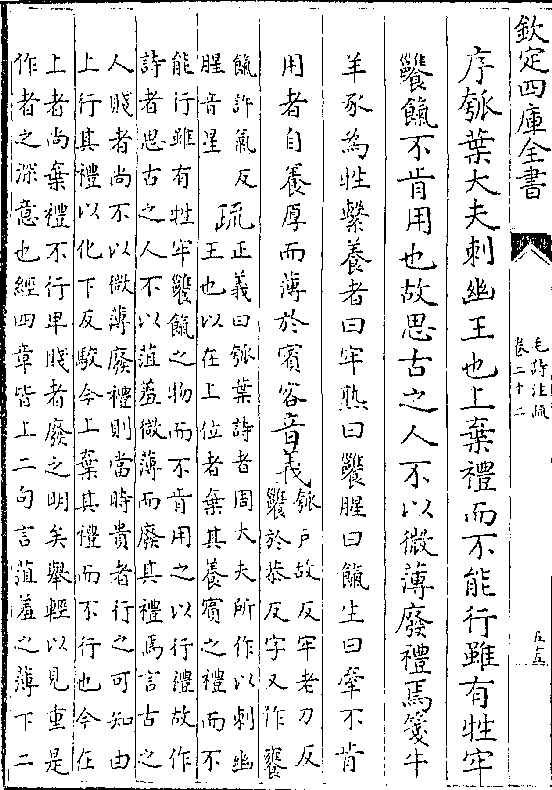 欽定四庫全書
毛詩注疏
卷二十二
五十五
序瓠葉大夫刺幽王也上棄禮而不能行雖有牲牢
饔餼不肯用也故思古之人不以微薄廢禮焉箋牛
羊豕為牲繫養者曰牢熟曰饔腥曰餼生曰牽不肯
用者自養厚而薄於賓客音義
瓠戶故反牢老刀反
饔於恭反字又作饔
餼許氣反
腥音星
疏
正義曰瓠葉詩者周大夫所作以刺幽
王也以在上位者棄其養賓之禮而不
能行雖有牲牢饔餼之物而不肯用之以行禮故作
詩者思古之人不以葅羞微薄而廢其禮焉言古之
人賤者尚不以微薄廢禮則當時貴者行之可知由
上行其禮以化下反駮今上棄其禮而不行也今在
上者尚棄禮不行卑賤者廢之明矣舉輕以見重是
作者之深意也經四章皆上二句言葅羞之薄下二